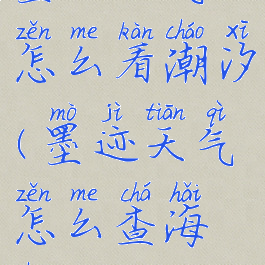 zěn me kàn cháo xī
怎么看潮汐
mò jì tiān qì
(墨迹天气
zěn me chá hǎi
怎么查海